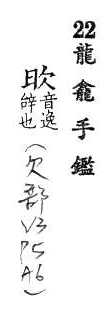 22龍龕手鑑
欥音逸辝也(欠部V3P5A6)